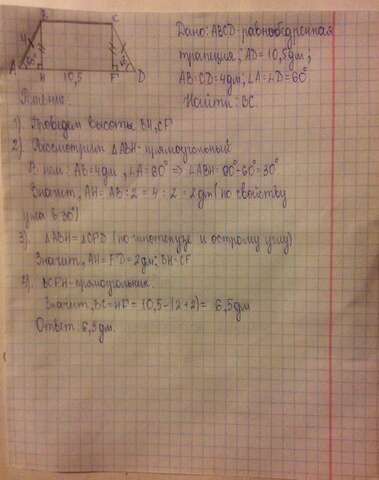 B C
4
A 60° H 10,5 F D
Дано: ABCD-равнобедренная
трапеция; AD=10,5дм;
AB=CD=4дм; ∠A=∠D=60°
Найти: BC.
Решение:
1) Проведем высоты BH, CF
2) Рассмотрим ΔABH-прямоугольный
В нем: AB=4дм, ∠A=60° ⇒ ∠ABH=90°-60°=30°
Значит, AH=AB:2=4:2=2дм (по свойству
угла в 30°)
3) ΔABH=ΔCFD (по гипотенузе и острому углу)
Значит, AH=FD=2дм; BH=CF
4) BCFH-прямоугольник.
Значит, BC=HF=10,5-(2+2)= 6,5дм
Ответ: 6,5дм.